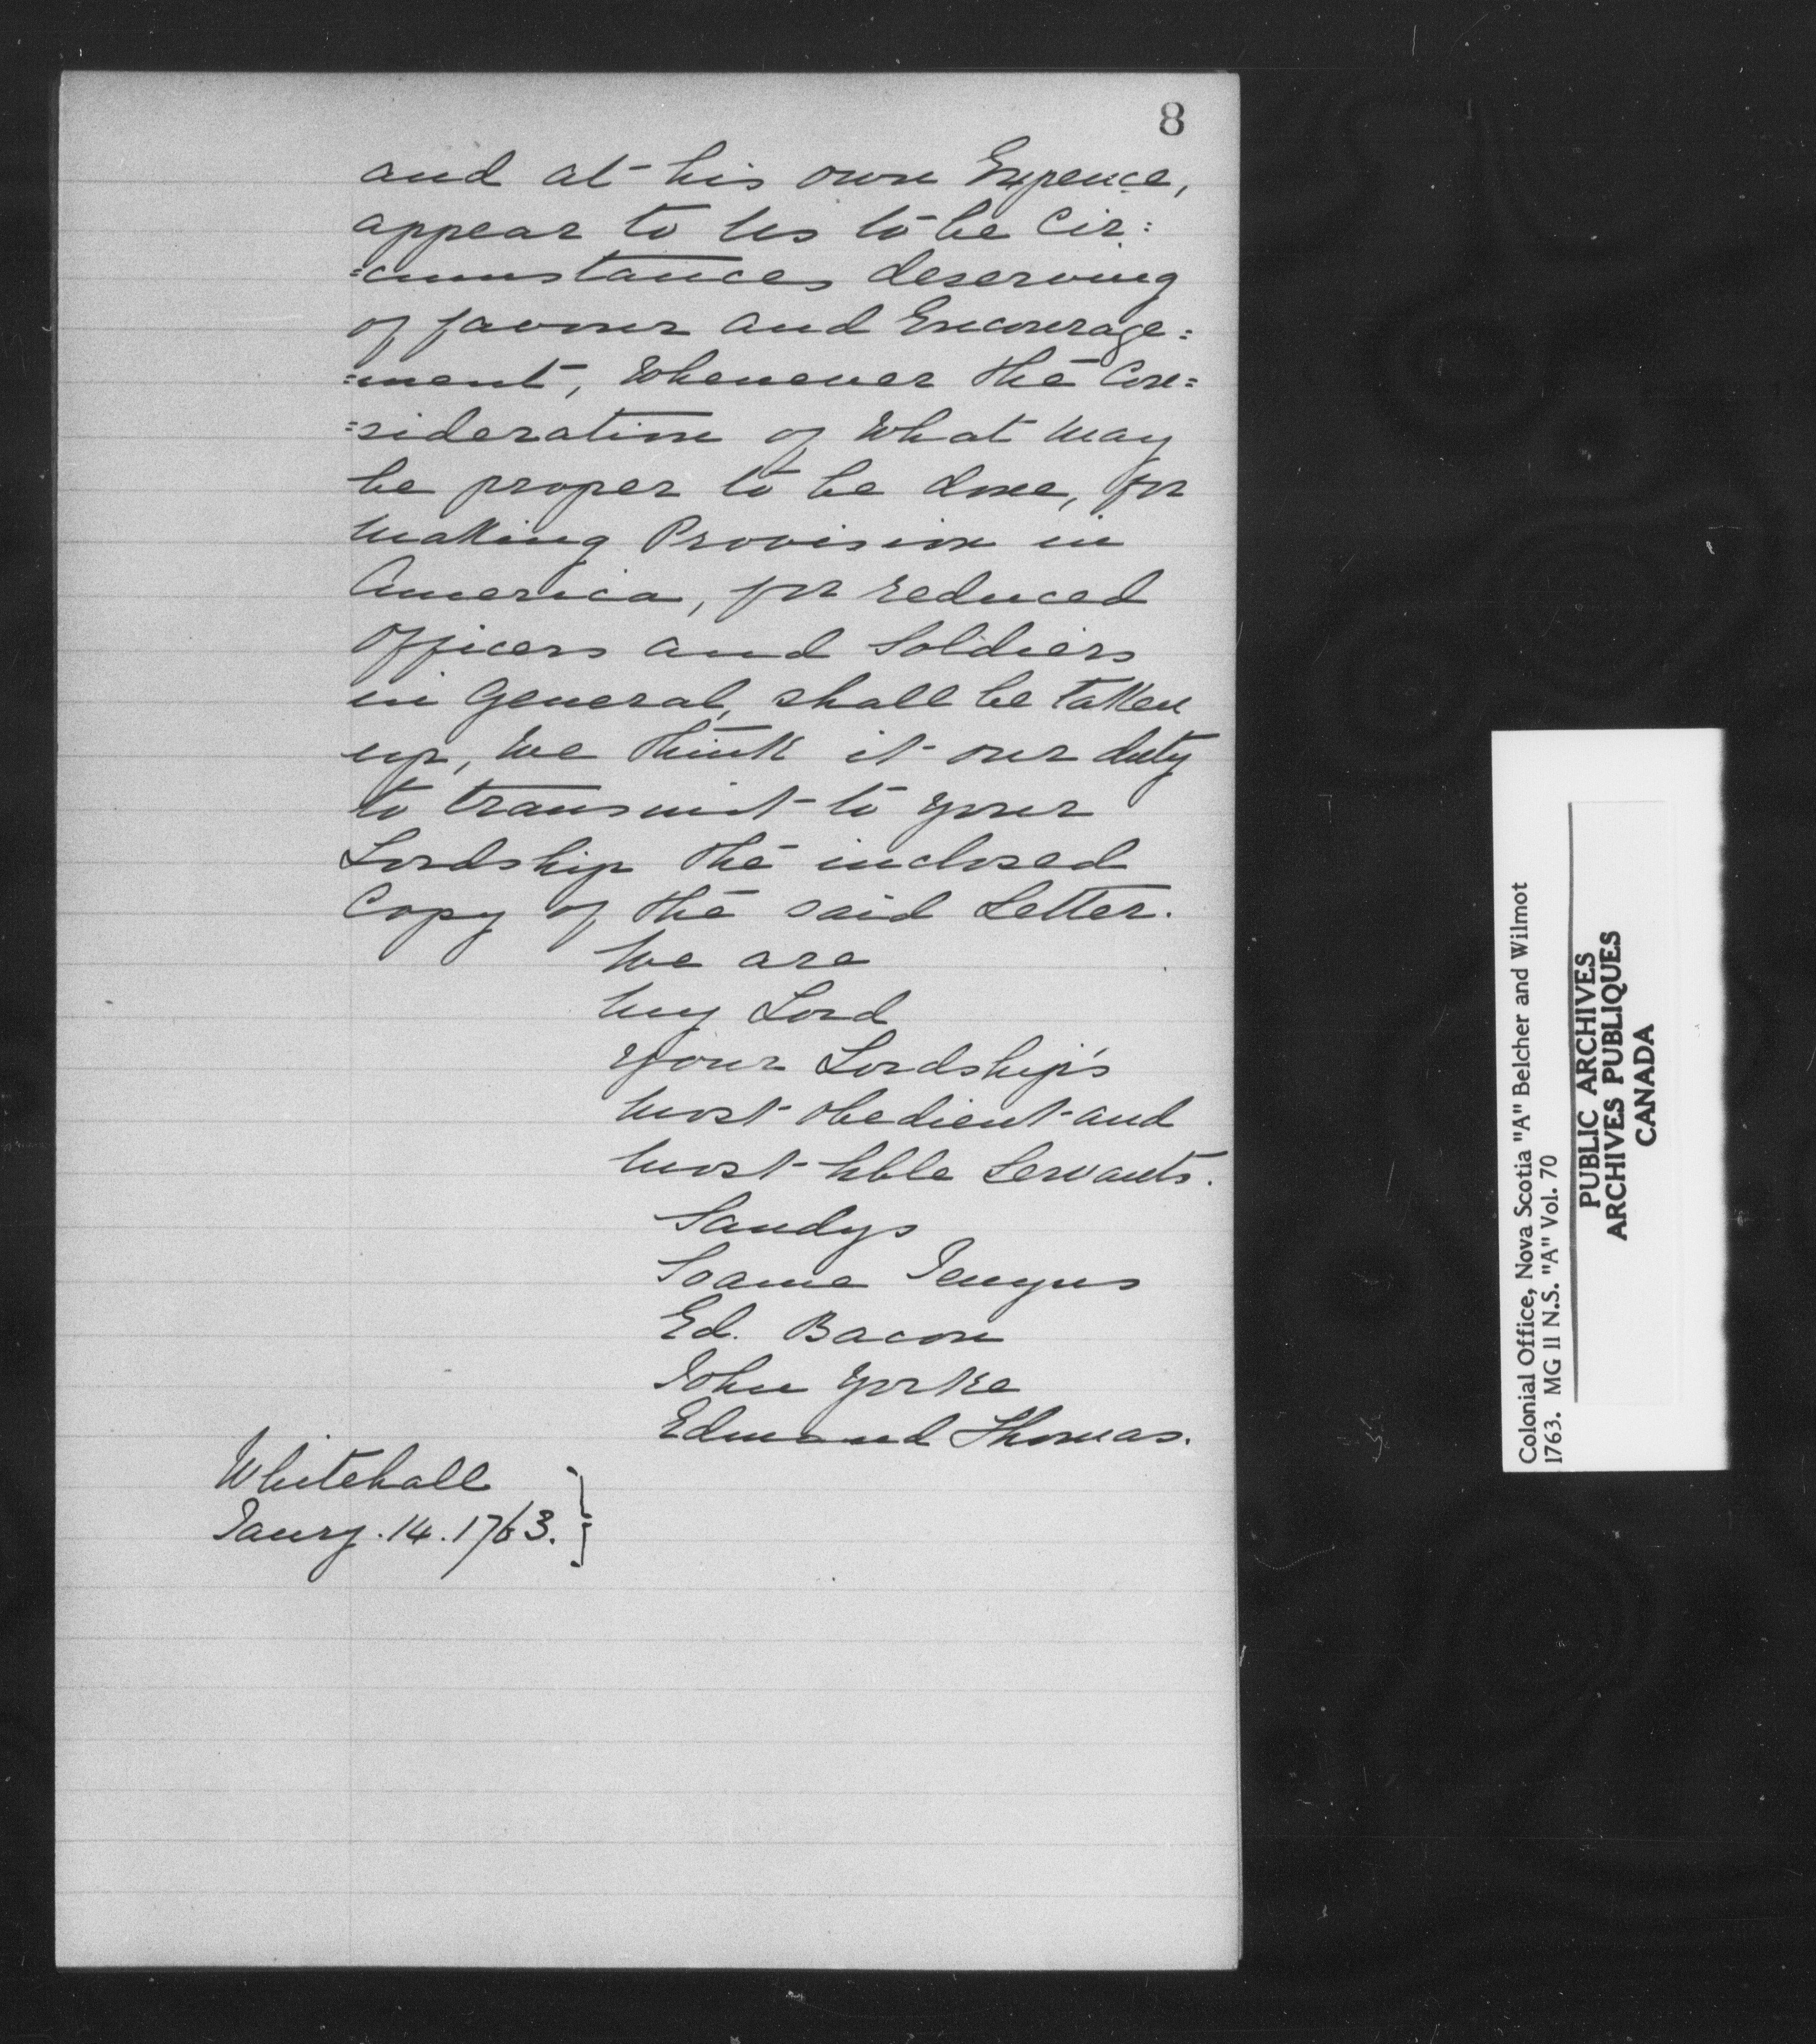 8
and at his own Expence,
appear to Us to be Cir:
=cumstances deserving
of favour and Encourage:
=ment, Whenever the Con=
=sideration of What may
be proper to be done, for
making Provision in
America, for reduced
Officers and Soldiers
in General, shall be taken
up, We think it our duty
to transmit to your
Lordship the inclosed
Copy of the said Letter.
We are
My Lord
Your Lordship's
most obedient and
most hble Servants.
Sandys
Soame Jenyns
Ed. Bacon
John Yorke
Edmond Thomas.
Whitehall
Janry. 14. 1763.
Colonial Office, Nova Scotia "A" Belcher and Wilmot
1763. MG 11 N.S. "A" Vol. 70
PUBLIC ARCHIVES
ARCHIVES PUBLIQUES
CANADA